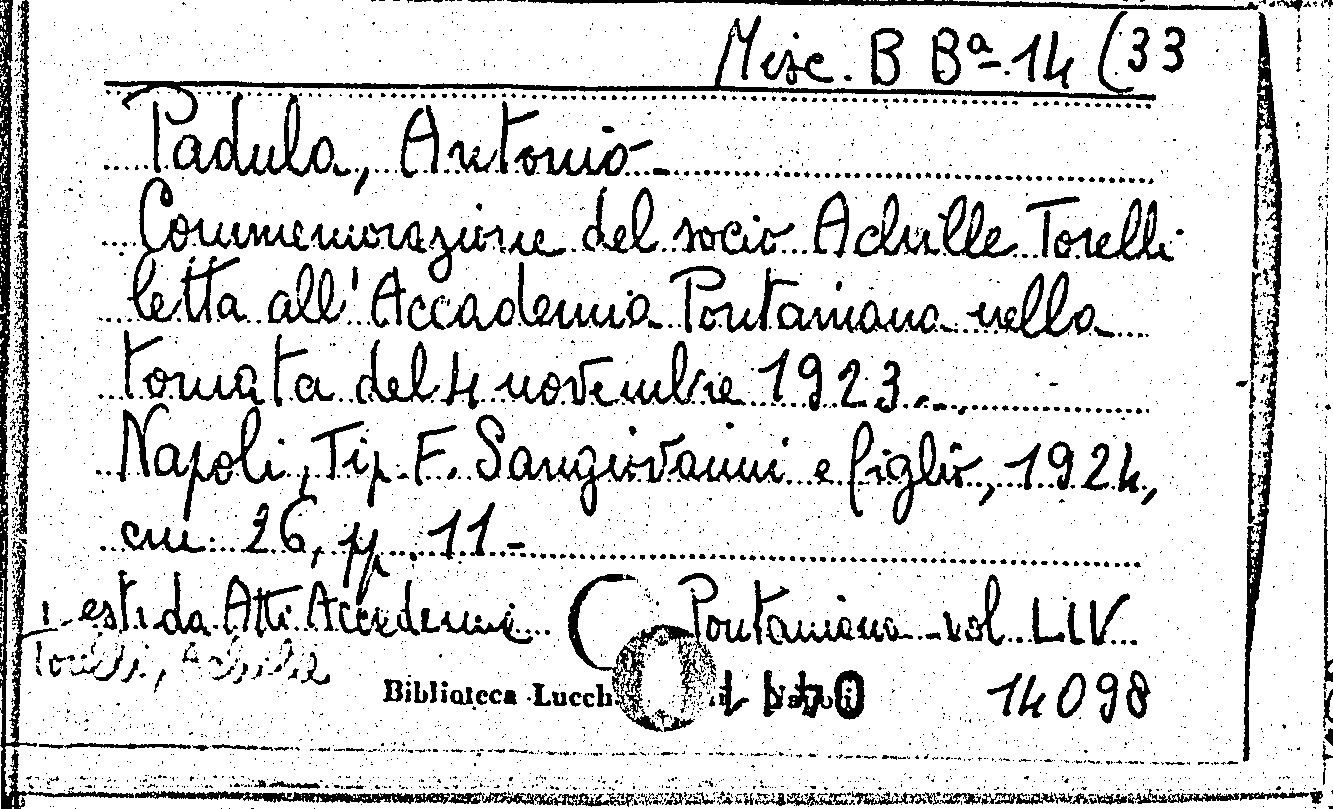 Misc. B Bª 14 (33
Padula, Antonio
Commemorazione del socio Achille Torelli
letta all'Accademia Pontaniana nella
tornata del 4 novembre 1923.
Napoli, Tip. F. Sangiovanni e figlio, 1924,
cm 26, pp. 11-
estr. da Atti Accademi Pontaniana vol. LIV
Torelli, Achille
Biblioteca Lucch 14098